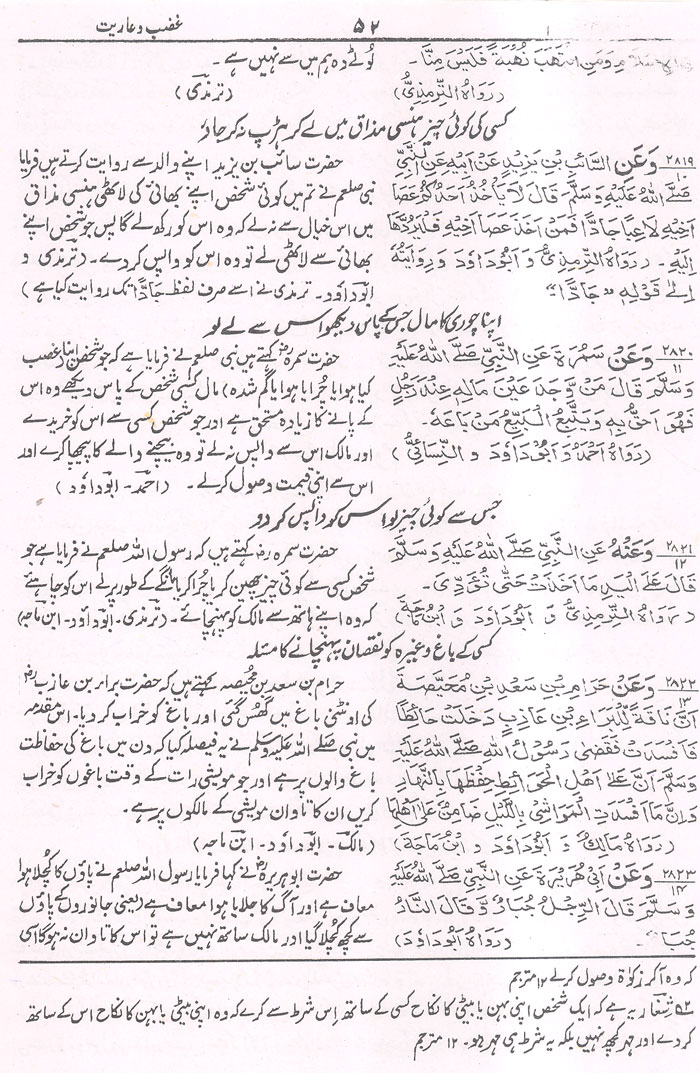 غضب وعاریت
۵۲
فِی الْاِسْلَامِ وَمَنِ انْتَهَبَ نُهْبَةً فَلَيْسَ مِنَّا۔
(رَوَاهُ التِّرْمِذِيُّ)
لُوٹے وہ ہم میں سے نہیں ہے۔
(ترمذی)
کسی کی کوئی چیز ہنسی مذاق میں لے کر ہڑپ نہ کر جاؤ
۲۸۱۹
۱۰
وَعَنِ السَّائِبِ بْنِ يَزِيْدَ عَنْ اَبِيْهِ عَنِ النَّبِيِّ
صَلَّے اللهُ عَلَيْهِ وَسَلَّمَ قَالَ لَا يَأْخُذُ اَحَدُكُمْ عَصَا
اَخِيْهِ لَاعِبًا جَادًّا فَمَنْ اَخَذَ عَصَا اَخِيْهِ فَلْيَرُدَّهَا
اِلَيْهِ۔ (رَوَاهُ التِّرْمِذِيُّ وَ اَبُوْدَاوٗدَ وَ رِوَايَتُهٗ
اِلٰے قَوْلِهٖ "جَادًّا"
حضرت سائب بن یزید اپنے والد سے روایت کرتے ہیں فرمایا
نبی صلعم نے تم میں کوئی شخص اپنے بھائی کی لاٹھی ہنسی مذاق
میں اس خیال سے نہ لے کہ وہ اس کو رکھ لے گا پس جو شخص اپنے
بھائی سے لاٹھی لے تو وہ اس کو واپس کر دے۔ (ترمذی و
ابوداود۔ ترمذی نے اسے صرف لفظ جادًّا تک روایت کیا ہے)
اپنا چوری کا مال جس کے پاس دیکھو اس سے لے لو
۲۸۲۰
۱۱
وَعَنْ سَمُرَةَ عَنِ النَّبِيِّ صَلَّے اللهُ عَلَيْهِ
وَسَلَّمَ قَالَ مَنْ وَّجَدَ عَيْنَ مَالِهٖ عِنْدَ رَجُلٍ
فَهُوَ اَحَقُّ بِهٖ وَ يَتَّبِعُ الْبَيِّعُ مَنْ بَاعَهٗ۔
(رَوَاهُ اَحْمَدُ وَ اَبُوْدَاوٗدَ وَ النَّسَائِيُّ)
حضرت سمرہ رضؓ کہتے ہیں نبی صلعم نے فرمایا ہے کہ جو شخص اپنا (غصب
کیا ہوا یا چُرایا ہوا یا گم شدہ) مال کسی شخص کے پاس دیکھے وہ اس
کے پانے کا زیادہ مستحق ہے اور جو شخص کسی سے اس کو خریدے
اور مالک اس سے واپس لے لے تو وہ بیچنے والے کا پیچھا کرے اور
اس سے اپنی قیمت وصول کرلے۔ (احمد۔ ابوداود)
جس سے کوئی چیز لو اس کو واپس کر دو
۲۸۲۱
۱۲
وَعَنْهُ عَنِ النَّبِيِّ صَلَّے اللهُ عَلَيْهِ وَسَلَّمَ
قَالَ عَلَے الْيَدِ مَا اَخَذَتْ حَتّٰى تُؤَدِّيَ۔
(رَوَاهُ التِّرْمِذِيُّ وَ اَبُوْدَاوٗدَ وَ ابْنُ مَاجَةَ)
حضرت سمرہ رضؓ کہتے ہیں کہ رسول اللہ صلعم نے فرمایا ہے جو
شخص کسی سے کوئی چیز چھین کر یا چُرا کر یا مانگے کے طور پر لے اس کو چاہئے
کہ وہ اپنے ہاتھ سے مالک کو پہنچائے۔ (ترمذی۔ ابوداود۔ ابن ماجہ)
کسی کے باغ وغیرہ کو نقصان پہنچانے کا مسئلہ
۲۸۲۲
۱۳
وَعَنْ حَرَامِ بْنِ سَعْدِ بْنِ مُحَيِّصَةَ
اَنَّ نَاقَةً لِّلْبَرَاءِ بْنِ عَازِبٍ دَخَلَتْ حَائِطًا
فَاَفْسَدَتْ فَقَضٰى رَسُوْلُ اللهِ صَلَّے اللهُ عَلَيْهِ
وَسَلَّمَ اَنَّ عَلٰى اَهْلِ الْحَوَائِطِ حِفْظَهَا بِالنَّهَارِ
وَاِنَّ مَا اَفْسَدَتِ الْمَوَاشِيْ بِاللَّيْلِ ضَامِنٌ عَلٰى اَهْلِهَا
(رَوَاهُ مَالِكٌ وَ اَبُوْدَاوٗدَ وَ ابْنُ مَاجَةَ)
حرام بن سعد بن محیصہ کہتے ہیں کہ حضرت براء بن عازب رضؓ
کی اونٹنی باغ میں گھس گئی اور باغ کو خراب کر دیا۔ اس مقدمہ
میں نبی صلے اللہ علیہ وسلم نے یہ فیصلہ کیا کہ دن میں باغ کی حفاظت
باغ والوں پر ہے اور جو مویشی رات کے وقت باغوں کو خراب
کریں ان کا تاوان مویشی کے مالکوں پر ہے۔
(مالک۔ ابوداود۔ ابن ماجہ)
۲۸۲۳
۱۴
وَعَنْ اَبِيْ هُرَيْرَةَ عَنِ النَّبِيِّ صَلَّے اللهُ عَلَيْهِ
وَسَلَّمَ قَالَ الرِّجْلُ جُبَارٌ وَّ قَالَ النَّارُ
جُبَارٌ۔ (رَوَاهُ اَبُوْدَاوٗدَ)
حضرت ابو ہریرہ رضؓ نے کہا فرمایا رسول اللہ صلعم نے پاؤں کا کُچلا ہوا
معاف ہے اور آگ کا جلایا ہوا معاف ہے (یعنی جانوروں کے پاؤں
سے کچھ کُچلا گیا اور مالک ساتھ نہیں ہے تو اس کا تاوان نہ ہوگا اسی
کہ وہ آکر زکوٰۃ وصول کرلے ۱۲ مترجم
شغار یہ ہے کہ ایک شخص اپنی بہن یا بیٹی کا نکاح کسی کے ساتھ اس شرط سے کرے کہ وہ اپنی بیٹی یا بہن کا نکاح اس کے ساتھ
کر دے اور مہر کچھ نہیں بلکہ یہ شرط ہی مہر ہو۔ ۱۲ مترجم